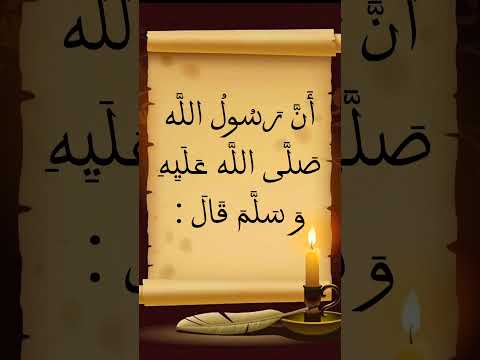 أَنَّ رَسُولُ اللَّه
صَلَّى اللَّه عَلَيهِ
وَ سَلَّمَ قَالَ :